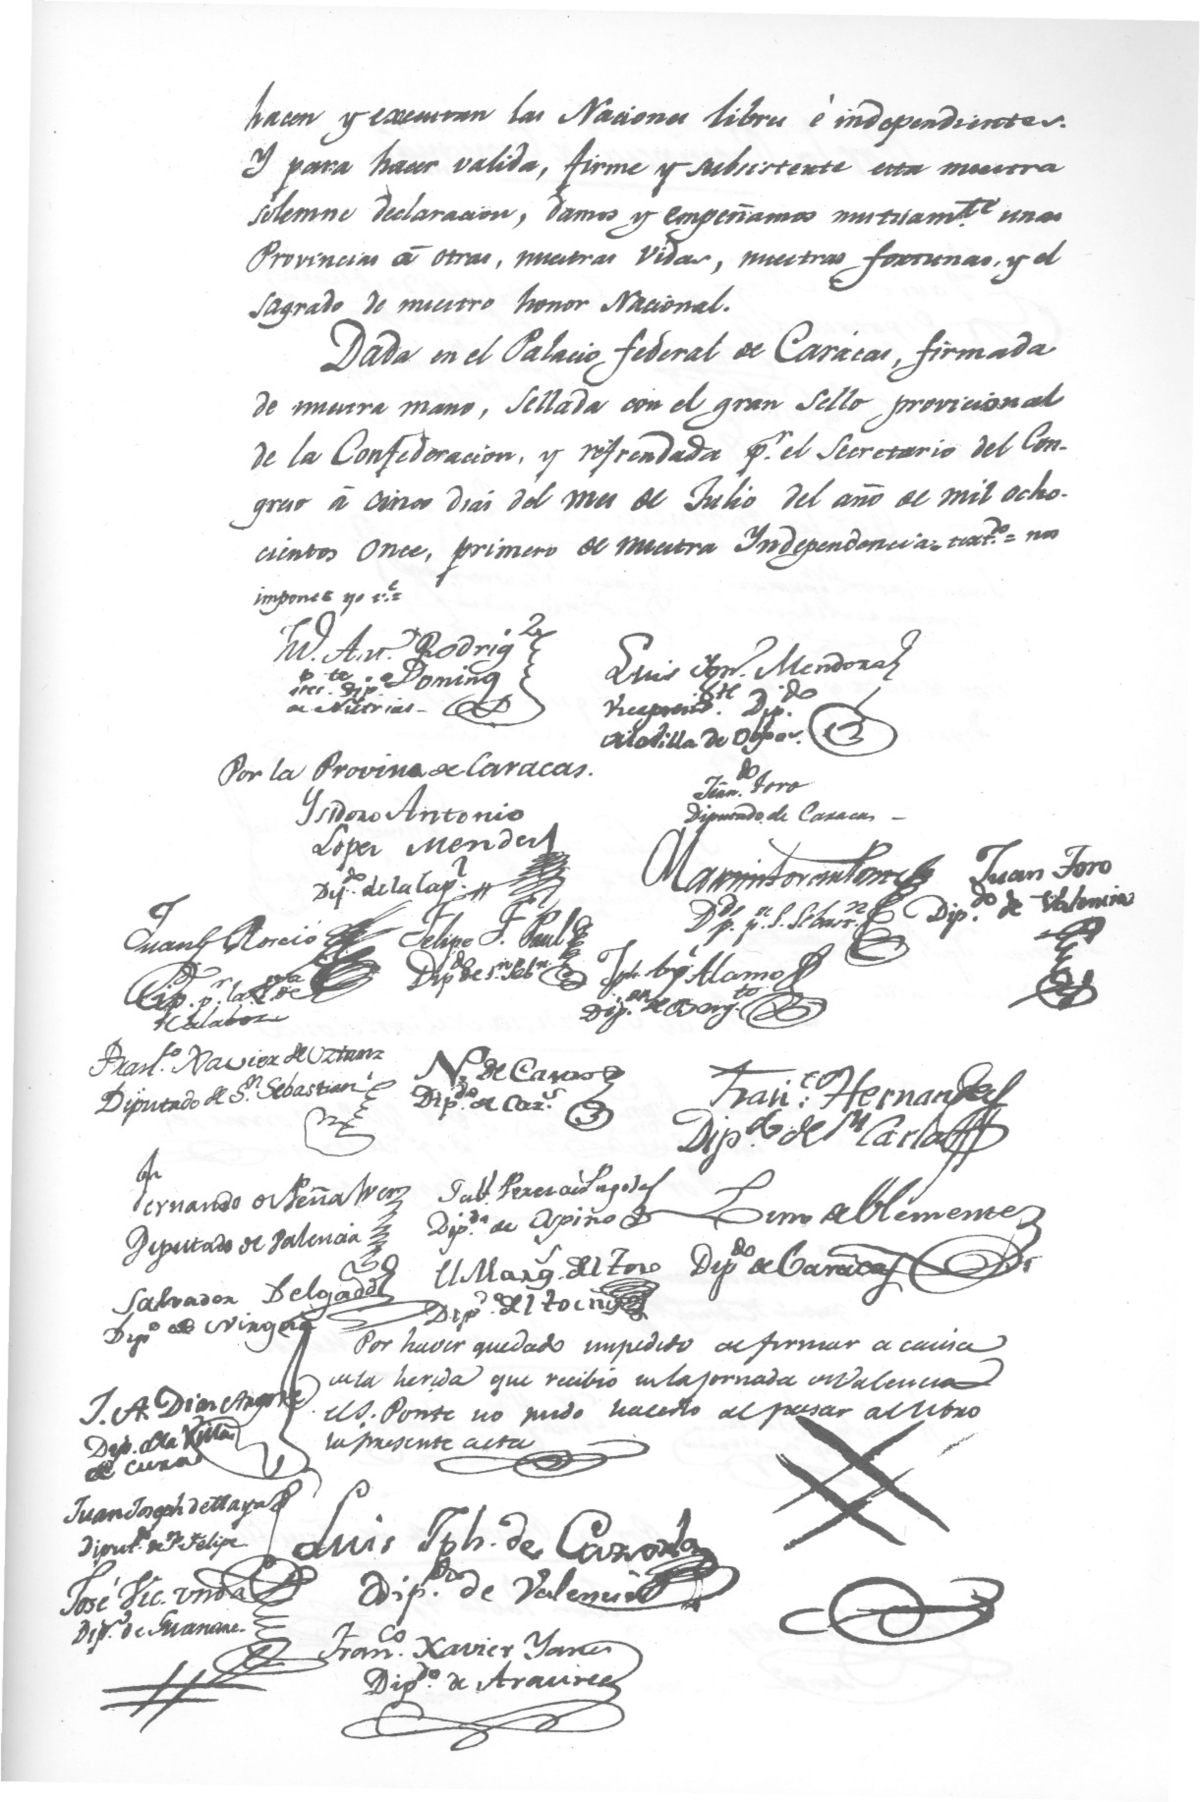 hacen y executan las Naciones libres è independientes.
Y para hacer valida, firme y subsistente esta nuestra
solemne declaracion, damos y empeñamos mutuam.te unas
Provincias á otras, nuestras vidas, nuestras fortunas, y el
sagrado de nuestro honor Nacional.
Dada en el Palacio federal de Carácas, firmada
de nuestra mano, sellada con el gran sello provicional
de la Confederacion, y refrendada p.r el Secretario del Con-
greso á cinco dias del mes de Julio del año de mil ocho-
cientos once, primero de nuestra Independencia = =nos
impone
J.n Ant.o Rodrig.z
Doming
Dip.o
de Nutrias
Luis Jph. Mendoza
Vicepresid.te Dip.do
de la Villa de Obispos.
Por la Provincia de Caracas.
Ysidoro Antonio
Lopez Mendez
Dip.do de la Cap.l
Fern.do Toro
Diputado de Caracas
Martin Tovar Ponte
D.do p.r S.n Sebast.n
Juan Toro
Dip.do de Valencia
Juan G. Roscio
Dip. p.r la V.a de
Calabozo
Felipe F. Paul
Dip.do de S.n Seb.n
Jph. Ang.l Alamo
Dip. de Barq.to
Fran.co Xavier de Uztariz
Diputado de S.n Sebastian
N. de Castro
Dip.do de Car.s
Fran.co Hernandez
Dip.do de S.n Carlos
Fernando de Peñalver
Diputado de Valencia
Gab.l Perez de Pagola
Dip.do de Ospino
Lino de Clemente
Dip.do de Carácas
Salvador Delgado
Dip.o de Nirgua
El Marq.s del Toro
Dip.do del Tocuyo
Por haver quedado impedido de firmar a causa
de la herida que recibio en la jornada de Valencia
el S. Ponte no pudo hacerlo al pasar al libro
la presente acta
J. A. Diaz Argote
Dip. de la Villa
de Cura
Juan Joseph de Maya
Diput.do de S.n Felipe
Luis Jph. de Cazorla
Dip.do de Valencia
José Vic. Unda
Dip.do de Guanare.
Fran.co Xavier Yanes
Dip.do de Araure